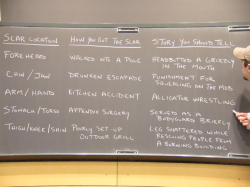 SCAR LOCATION HOW YOU GOT THE SCAR STORY YOU SHOULD TELL
FOREHEAD WALKED INTO A POLE HEADBUTTED A GRIZZLY
IN THE MOUTH
CHIN / JAW DRUNKEN ESCAPADE PUNISHMENT FOR
SQUEALING ON THE MOB
ARM / HAND KITCHEN ACCIDENT ALLIGATOR WRESTLING
STOMACH / TORSO APPENDIX SURGERY SERVED AS A
BODYGUARD BRIEFLY
THIGH / KNEE / SHIN POORLY SET-UP LEG SHATTERED WHILE
OUTDOOR GRILL RESCUING PEOPLE FROM
A BURNING BUILDING